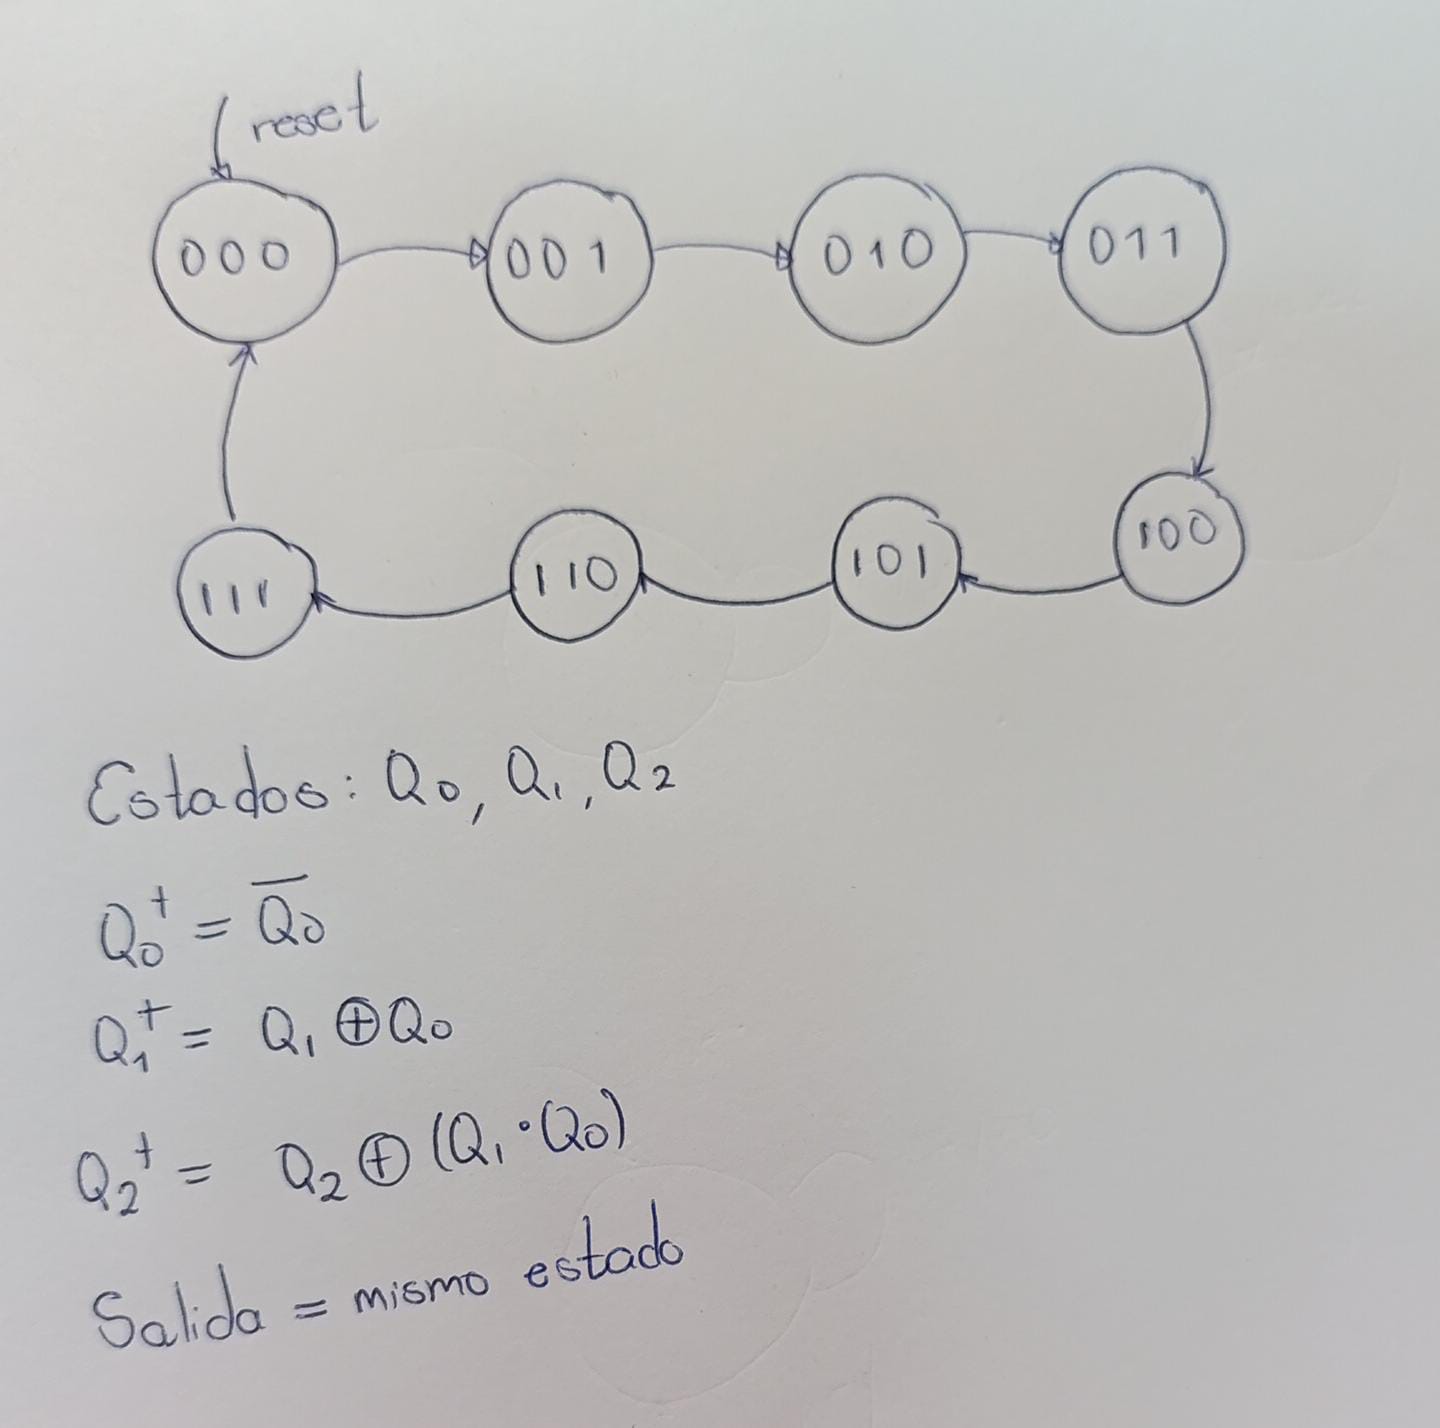 reset
000 001 010 011
111 110 101 100
Estados: Q0, Q1, Q2
Q0⁺ = Q̅0
Q1⁺ = Q1 ⊕ Q0
Q2⁺ = Q2 ⊕ (Q1 · Q0)
Salida = mismo estado